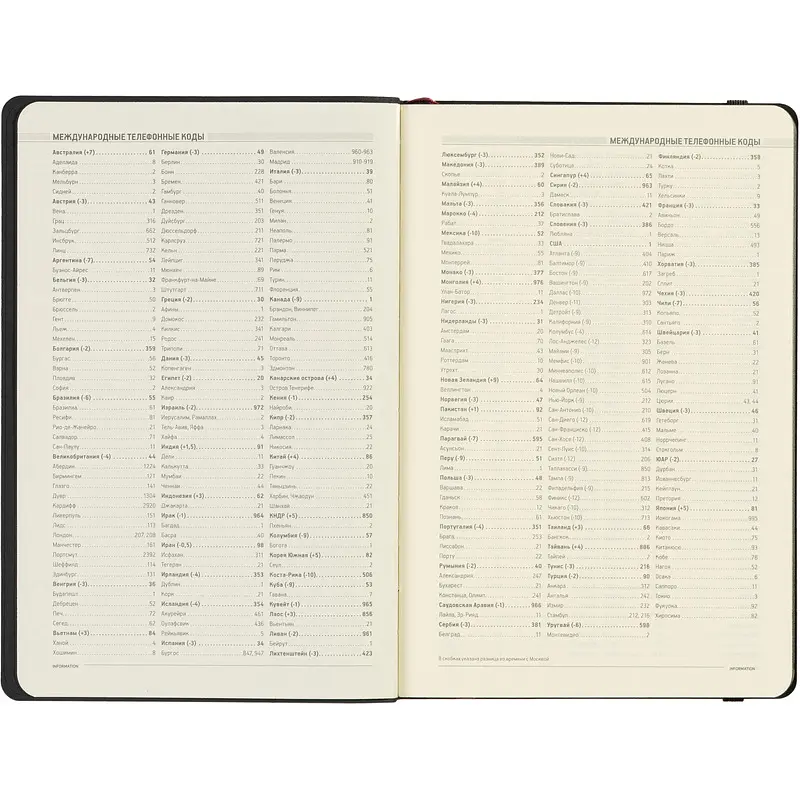 МЕЖДУНАРОДНЫЕ ТЕЛЕФОННЫЕ КОДЫ
Австралия (+7) 61
Аделаида 8
Канберра 2
Мельбурн 3
Сидней 2
Австрия (-3) 43
Вена 1
Грац 316
Зальцбург 662
Инсбрук 512
Линц 732
Аргентина (-7) 54
Буэнос-Айрес 11
Бельгия (-3) 32
Антверпен 3
Брюгге 50
Брюссель 2
Гент 9
Льеж 4
Мехелен 15
Болгария (-2) 359
Бургас 56
Варна 52
Пловдив 32
София 2
Бразилия (-6) 55
Бразилиа 61
Ресифи 81
Рио-де-Жанейро 21
Салвадор 71
Сан-Паулу 11
Великобритания (-4) 44
Абердин 1224
Бирмингем 121
Глазго 141
Дувр 1304
Кардифф 2920
Ливерпуль 151
Лидс 113
Лондон 207, 208
Манчестер 161
Портсмут 2392
Шеффилд 114
Эдинбург 131
Венгрия (-3) 36
Будапешт 1
Дебрецен 52
Печ 72
Сегед 62
Вьетнам (+3) 84
Ханой 4
Хошимин 8
Германия (-3) 49
Берлин 30
Бонн 228
Бремен 421
Гамбург 40
Ганновер 511
Дрезден 351
Дуйсбург 203
Дюссельдорф 211
Карлсруэ 721
Кельн 221
Лейпциг 341
Мюнхен 89
Франкфурт-на-Майне 69
Штутгарт 711
Греция (-2) 30
Афины 1
Домокос 232
Килкис 341
Родос 241
Триполи 71
Дания (-3) 45
Копенгаген 3
Египет (-2) 20
Александрия 3
Каир 2
Израиль (-2) 972
Иерусалим, Рамаллах 2
Тель-Авив, Яффа 3
Хайфа 4
Индия (+1,5) 91
Дели 11
Калькутта 33
Мумбаи 22
Ченнаи 44
Индонезия (+3) 62
Джакарта 21
Ирак (-1) 964
Багдад 1
Басра 40
Иран (-0,5) 98
Исфахан 311
Тегеран 21
Ирландия (-4) 353
Дублин 1
Корк 21
Исландия (-4) 354
Акурейри 461
Оулафсвик 436
Рейкьявик 5
Испания (-3) 34
Бургос 847, 947
Валенсия 960-963
Мадрид 910-919
Италия (-3) 39
Бари 80
Болонья 51
Венеция 41
Генуя 10
Милан 2
Неаполь 81
Палермо 91
Парма 521
Перуджа 75
Рим 6
Турин 11
Флоренция 55
Канада (-9) 1
Брандон, Виннипег 204
Гамильтон 905
Калгари 403
Монреаль 514
Оттава 613
Торонто 416
Эдмонтон 780
Канарские острова (+4) 34
Остров Тенерифе 922
Кения (-1) 254
Найроби 20
Кипр (-2) 357
Ларнака 24
Лимассол 25
Никосия 22
Китай (+4) 86
Гуанчжоу 20
Пекин 10
Тяньцзинь 22
Харбин, Чжаодун 451
Шанхай 21
КНДР (+5) 850
Пхеньян 2
Колумбия (-9) 57
Богота 1
Корея Южная (+5) 82
Сеул 2
Коста-Рика (-10) 506
Куба (-9) 53
Гавана 7
Кувейт (-1) 965
Лаос (+3) 856
Вьентьян 21
Ливан (-2) 961
Бейрут 1
Лихтенштейн (-3) 423
INFORMATION
МЕЖДУНАРОДНЫЕ ТЕЛЕФОННЫЕ КОДЫ
Люксембург (-3) 352
Македония (-3) 389
Скопье 2
Малайзия (+4) 60
Куала-Лумпур 3
Мальта (-3) 356
Марокко (-4) 212
Рабат 37
Мексика (-10) 52
Гвадалахара 33
Мехико 55
Монтеррей 81
Монако (-3) 377
Монголия (+4) 976
Улан-Батор 11
Нигерия (-3) 234
Лагос 1
Нидерланды (-3) 31
Амстердам 20
Гаага 70
Маастрихт 43
Роттердам 10
Утрехт 30
Новая Зеландия (+9) 64
Веллингтон 4
Норвегия (-3) 47
Пакистан (+1) 92
Исламабад 51
Карачи 21
Парагвай (-7) 595
Асунсьон 21
Перу (-9) 51
Лима 1
Польша (-3) 48
Варшава 22
Гданьск 58
Краков 12
Познань 61
Португалия (-4) 351
Брага 253
Лиссабон 21
Порту 22
Румыния (-2) 40
Александрия 247
Бухарест 21
Констанца, Олимп 241
Саудовская Аравия (-1) 966
Лайла, Эр-Рияд 11
Сербия (-3) 381
Белград 11
Нови-Сад 21
Суботица 24
Сингапур (+4) 65
Сирия (-2) 963
Дамаск 11
Словакия (-3) 421
Братислава 2
Словения (-3) 386
Любляна 1
США 1
Атланта (-9) 404
Балтимор (-9) 410
Бостон (-9) 617
Вашингтон (-9) 202
Даллас (-10) 972
Денвер (-11) 303
Детройт (-9) 313
Колумбус (-9) 614
Лос-Анджелес (-12) 323
Майами (-9) 305
Мемфис (-10) 901
Миннеаполис (-10) 612
Нашвилл (-10) 615
Новый Орлеан (-10) 504
Нью-Йорк (-9) 212
Сан-Антонио (-10) 210
Сан-Диего (-12) 619
Сан-Франциско (-12) 415
Сан-Хосе (-12) 408
Сент-Луис (-10) 314
Сиэтл (-12) 206
Таллахасси (-9) 850
Тампа (-9) 813
Филадельфия (-9) 215
Финикс (-12) 602
Чикаго (-10) 312
Хьюстон (-10) 713
Таиланд (+3) 66
Бангкок 2
Тайвань (+4) 886
Тайбей 2
Тунис (-3) 216
Турция (-2) 90
Анкара 312
Анталья 242
Измир 232
Стамбул 212, 216
Уругвай (-6) 598
Монтевидео 2
Финляндия (-2) 358
Котка 5
Лахти 3
Турку 2
Хельсинки 9
Франция (-3) 33
Авиньон 49
Бордо 556
Версаль 13
Ницца 493
Париж 1
Хорватия (-3) 385
Загреб 1
Сплит 21
Чехия (-3) 420
Чили (-7) 56
Копьяпо 52
Сантьяго 2
Швейцария (-3) 41
Базель 61
Берн 31
Женева 22
Лозанна 21
Лугано 91
Люцерн 41
Цюрих 43, 44
Швеция (-3) 46
Гетеборг 31
Мальме 40
Норрчепинг 11
Стокгольм 8
ЮАР (-2) 27
Дурбан 31
Йоханнесбург 11
Кейптаун 21
Претория 12
Япония (+5) 81
Иокогама
Кавасаки 44
Киото 75
Китакюсю 93
Кобе 78
Нагоя 52
Осака 6
Саппоро 11
Токио 3
Фукуока 92
Хиросима 82
В скобках указана разница во времени с Москвой
INFORMATION